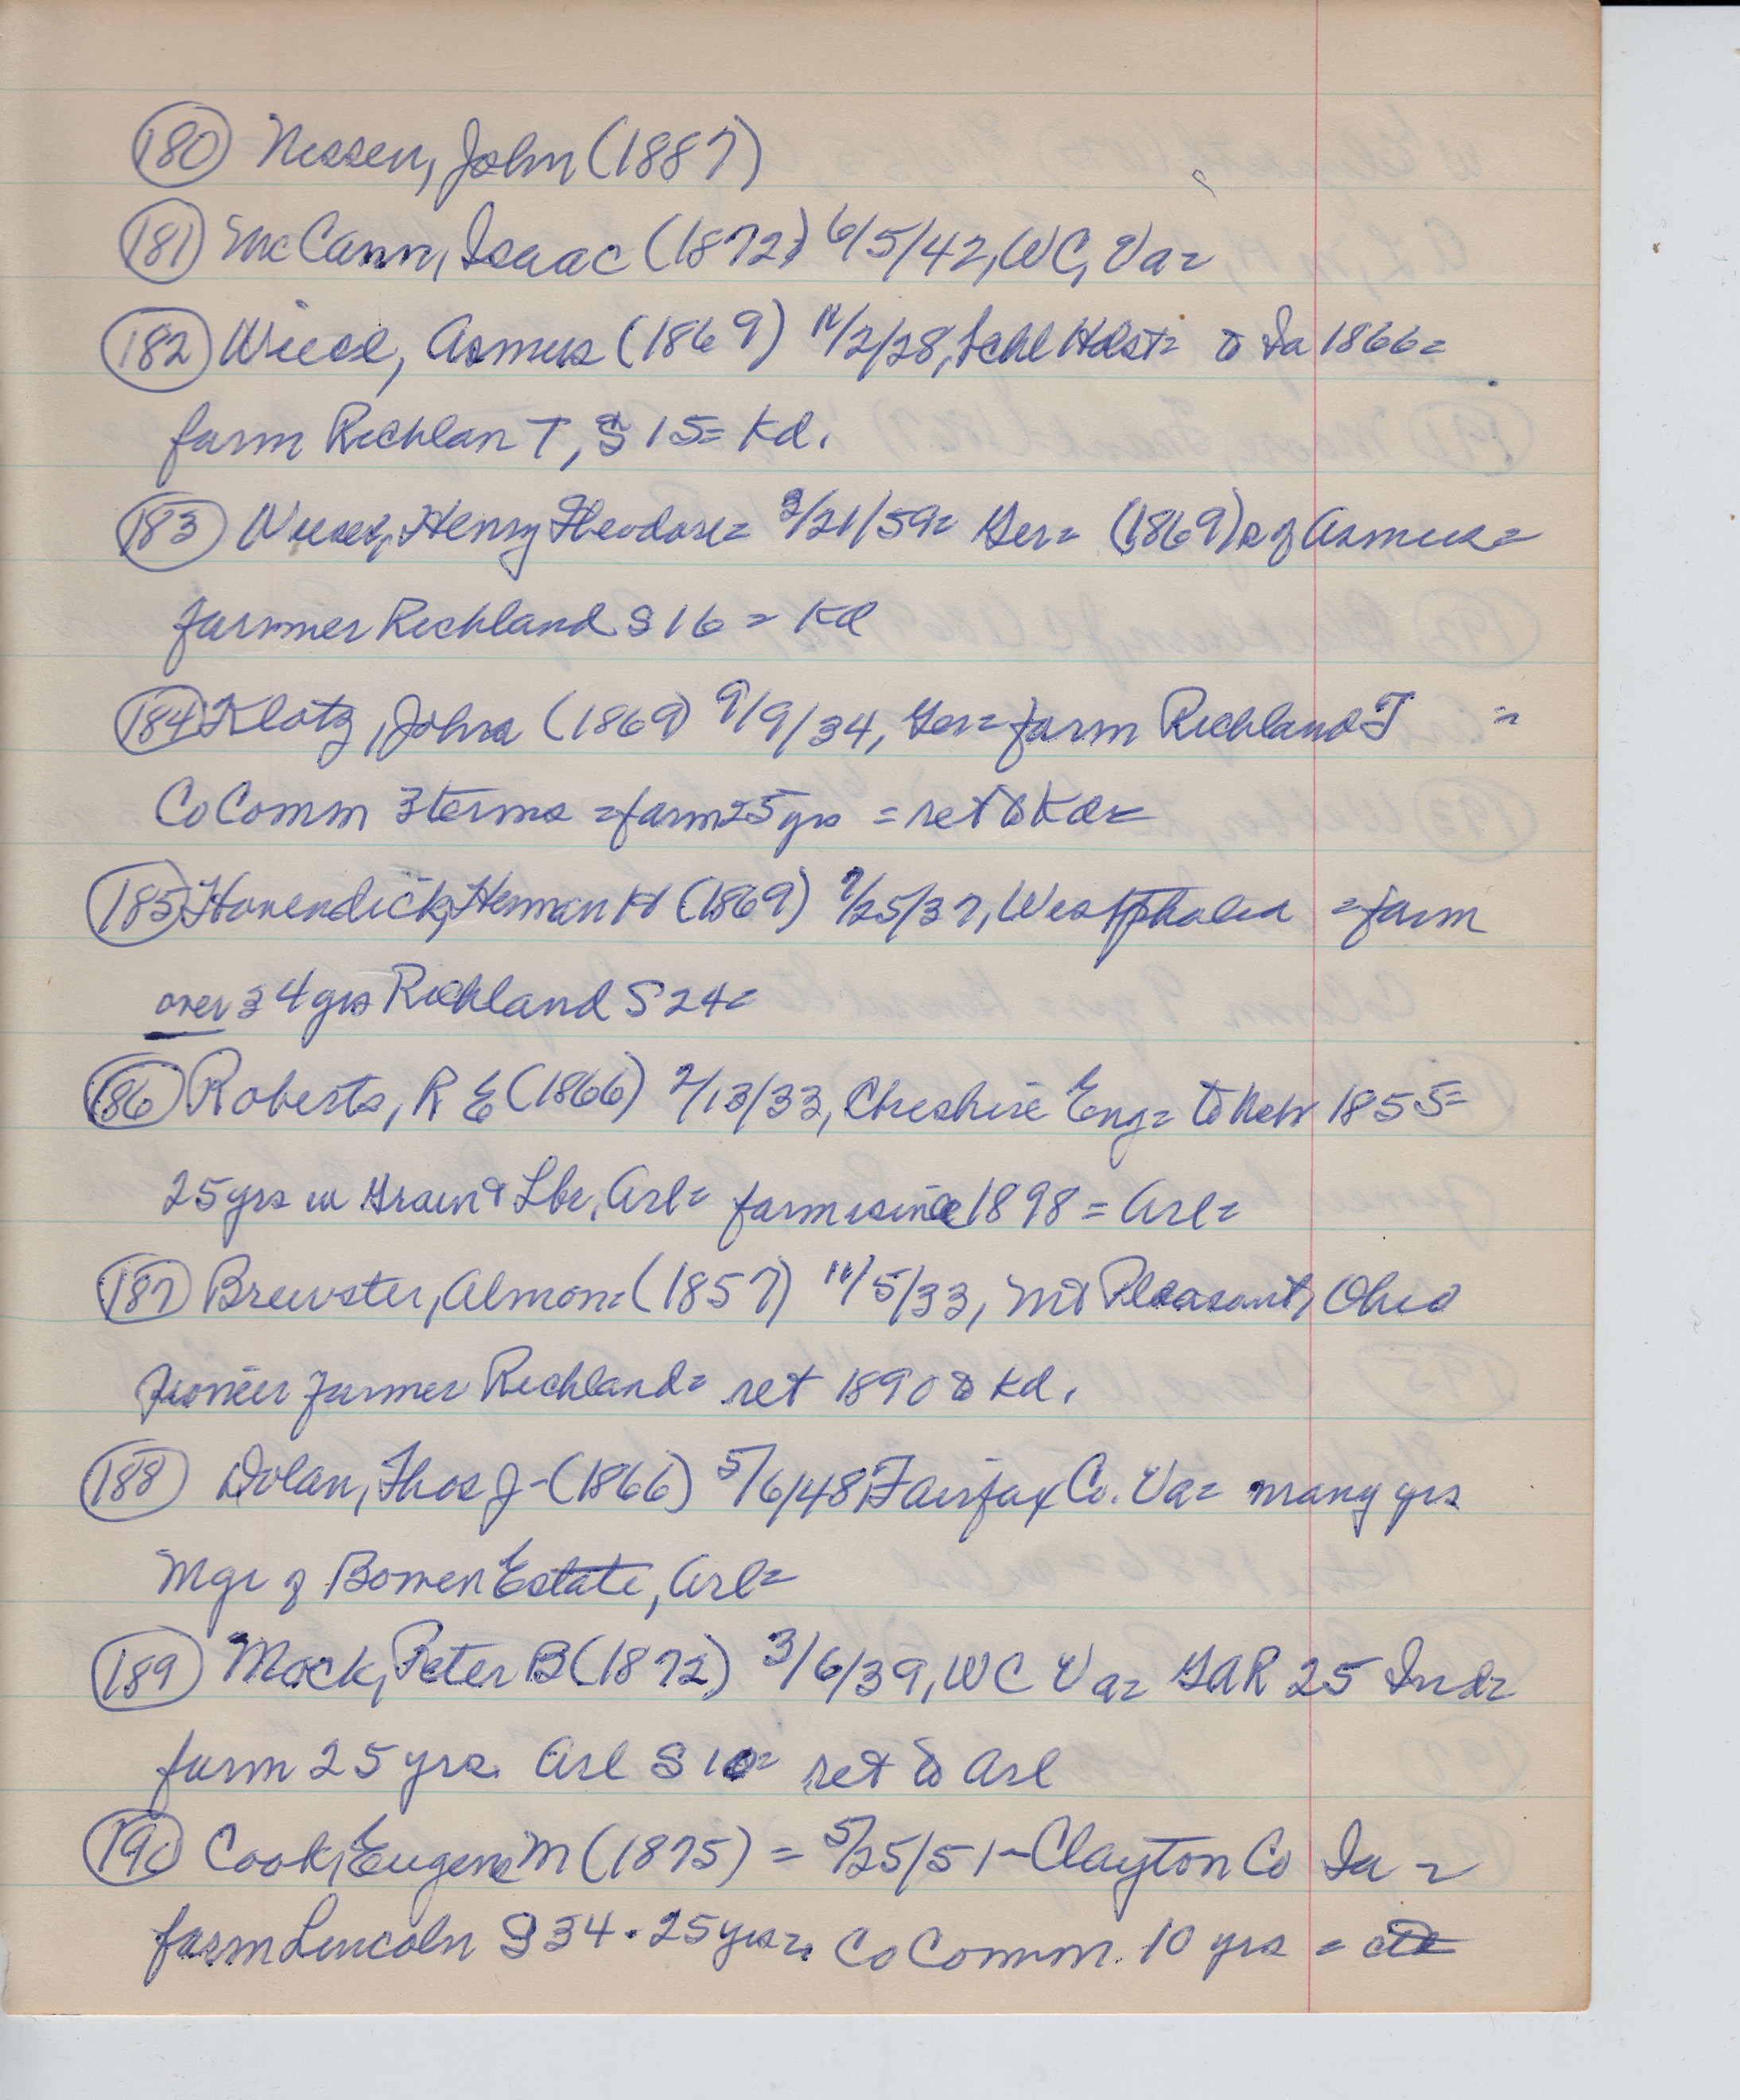 (180) Nissen, John (1887)
(181) McCann, Isaac (1872) 6/5/42, WC, Va=
(182) Wiese, Asmus (1869) 11/2/28, Schl Holst= to Ia 1866=
farm Richlan T, S 15= Kd.
(183) Wiese, Henry Theodore= 3/21/59= Ger= (1869) s of Asmus=
farmer Richland S 16 = Kd
(184) Klotz, John (1869) 9/9/34, Ger= farm Richland T =
Co Comm 3 terms = farm 25 yrs = ret to Kd=
(185) Hovendick, Herman H (1869) 7/25/37, Westphalia = farm
over 34 yrs Richland S 24=
(186) Roberts, R E (1866) 2/13/33, Cheshire Eng= to Neb 1855=
25 yrs in Grain & Lbr, Arl= farm since 1898 = Arl=
(187) Brewster, Almon= (1857) 11/5/33, Mt Pleasant, Ohio
pioneer farmer Richland= ret 1890 to Kd.
(188) Dolan, Thos J - (1866) 5/6/48, Fairfax Co. Va= many yrs
Mgr of Bowen Estate, Arl=
(189) Mock, Peter B (1872) 3/6/39, WC Va= GAR 25 Ind=
farm 25 yrs. Arl S 10= ret to Arl
(190) Cook, Eugene M (1875) = 5/25/51 - Clayton Co Ia =
farm Lincoln S 34 . 25 yrs =. Co Comm. 10 yrs =